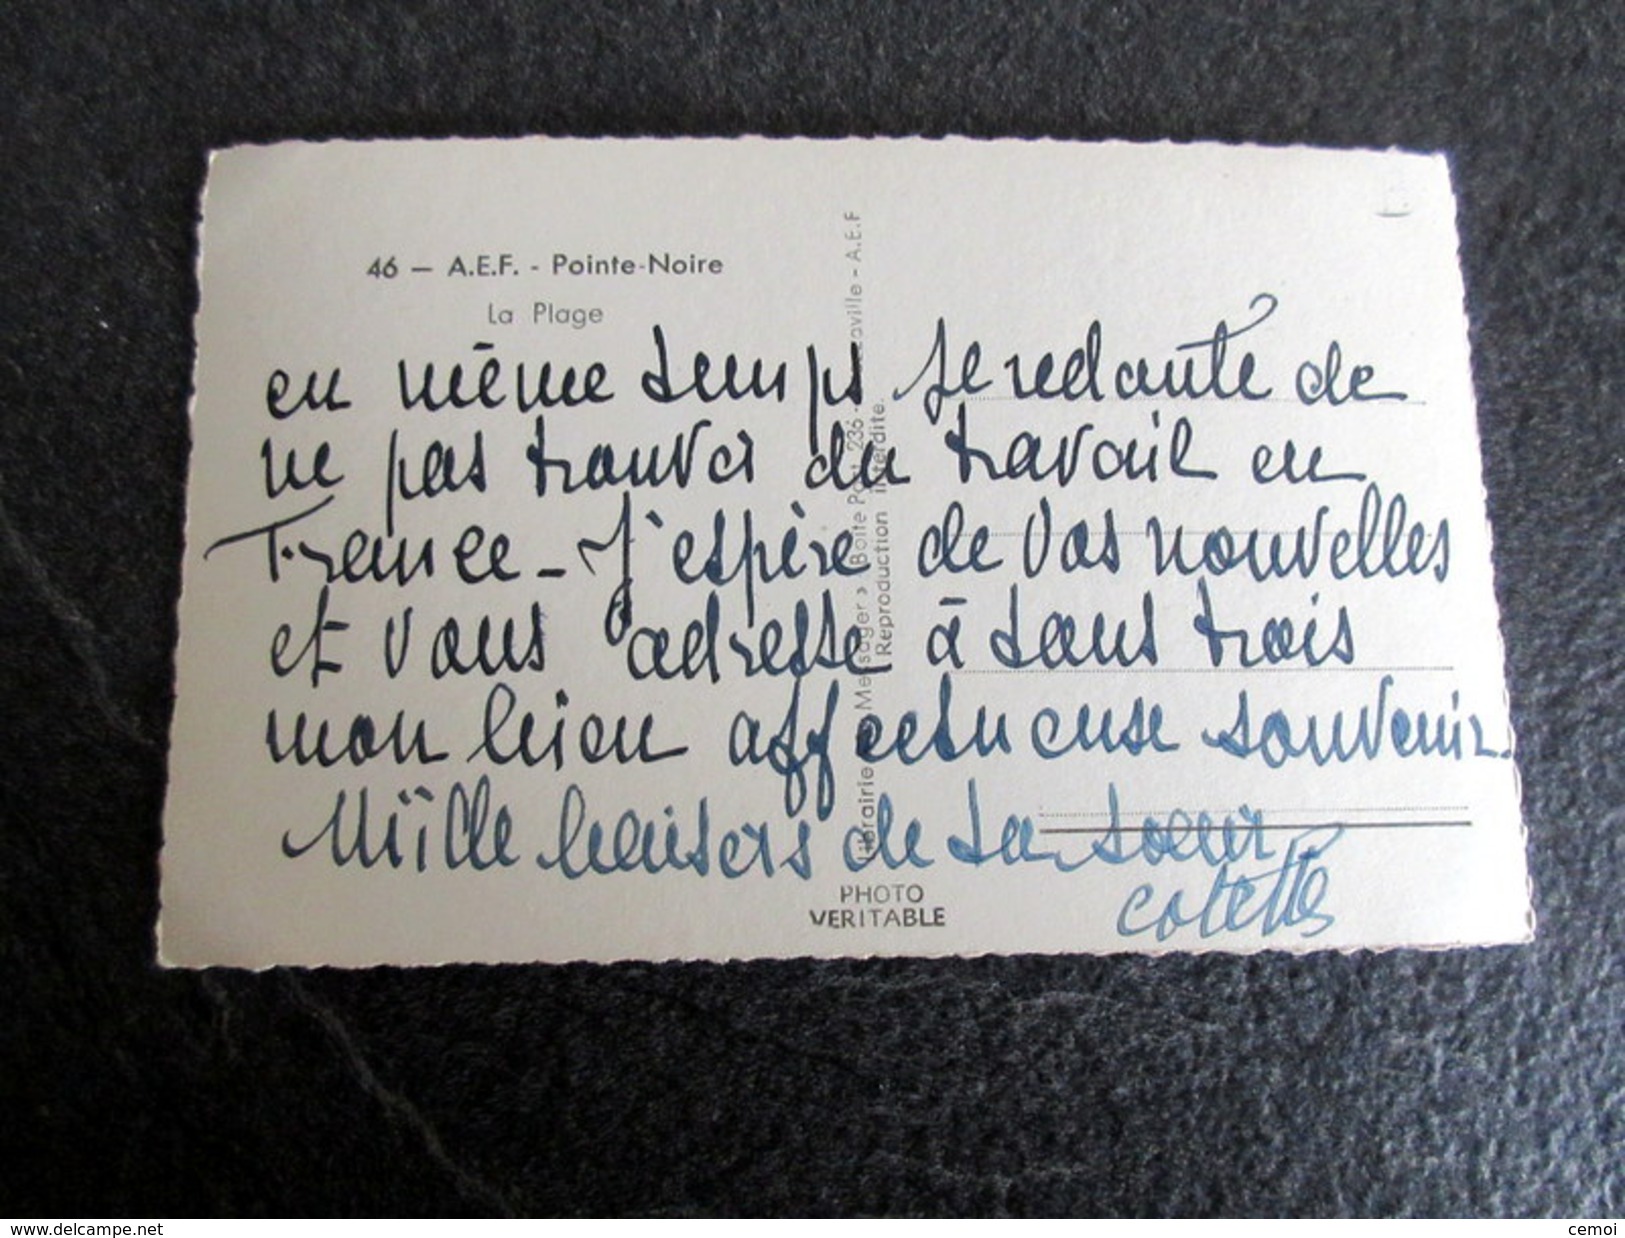 46 — A.E.F. - Pointe-Noire
La Plage
en même temps je redoute de
ne pas trouver du travail en
France - J'espère de vos nouvelles
et vous adresse à tous trois
mon bien affectueuse souvenir.
Mille baisers de ta soeur
Colette
Librairie « Messager » Boite Post. 236 - - A.E.F
Reproduction interdite.
PHOTO
VERITABLE
www.delcampe.net
cemoi